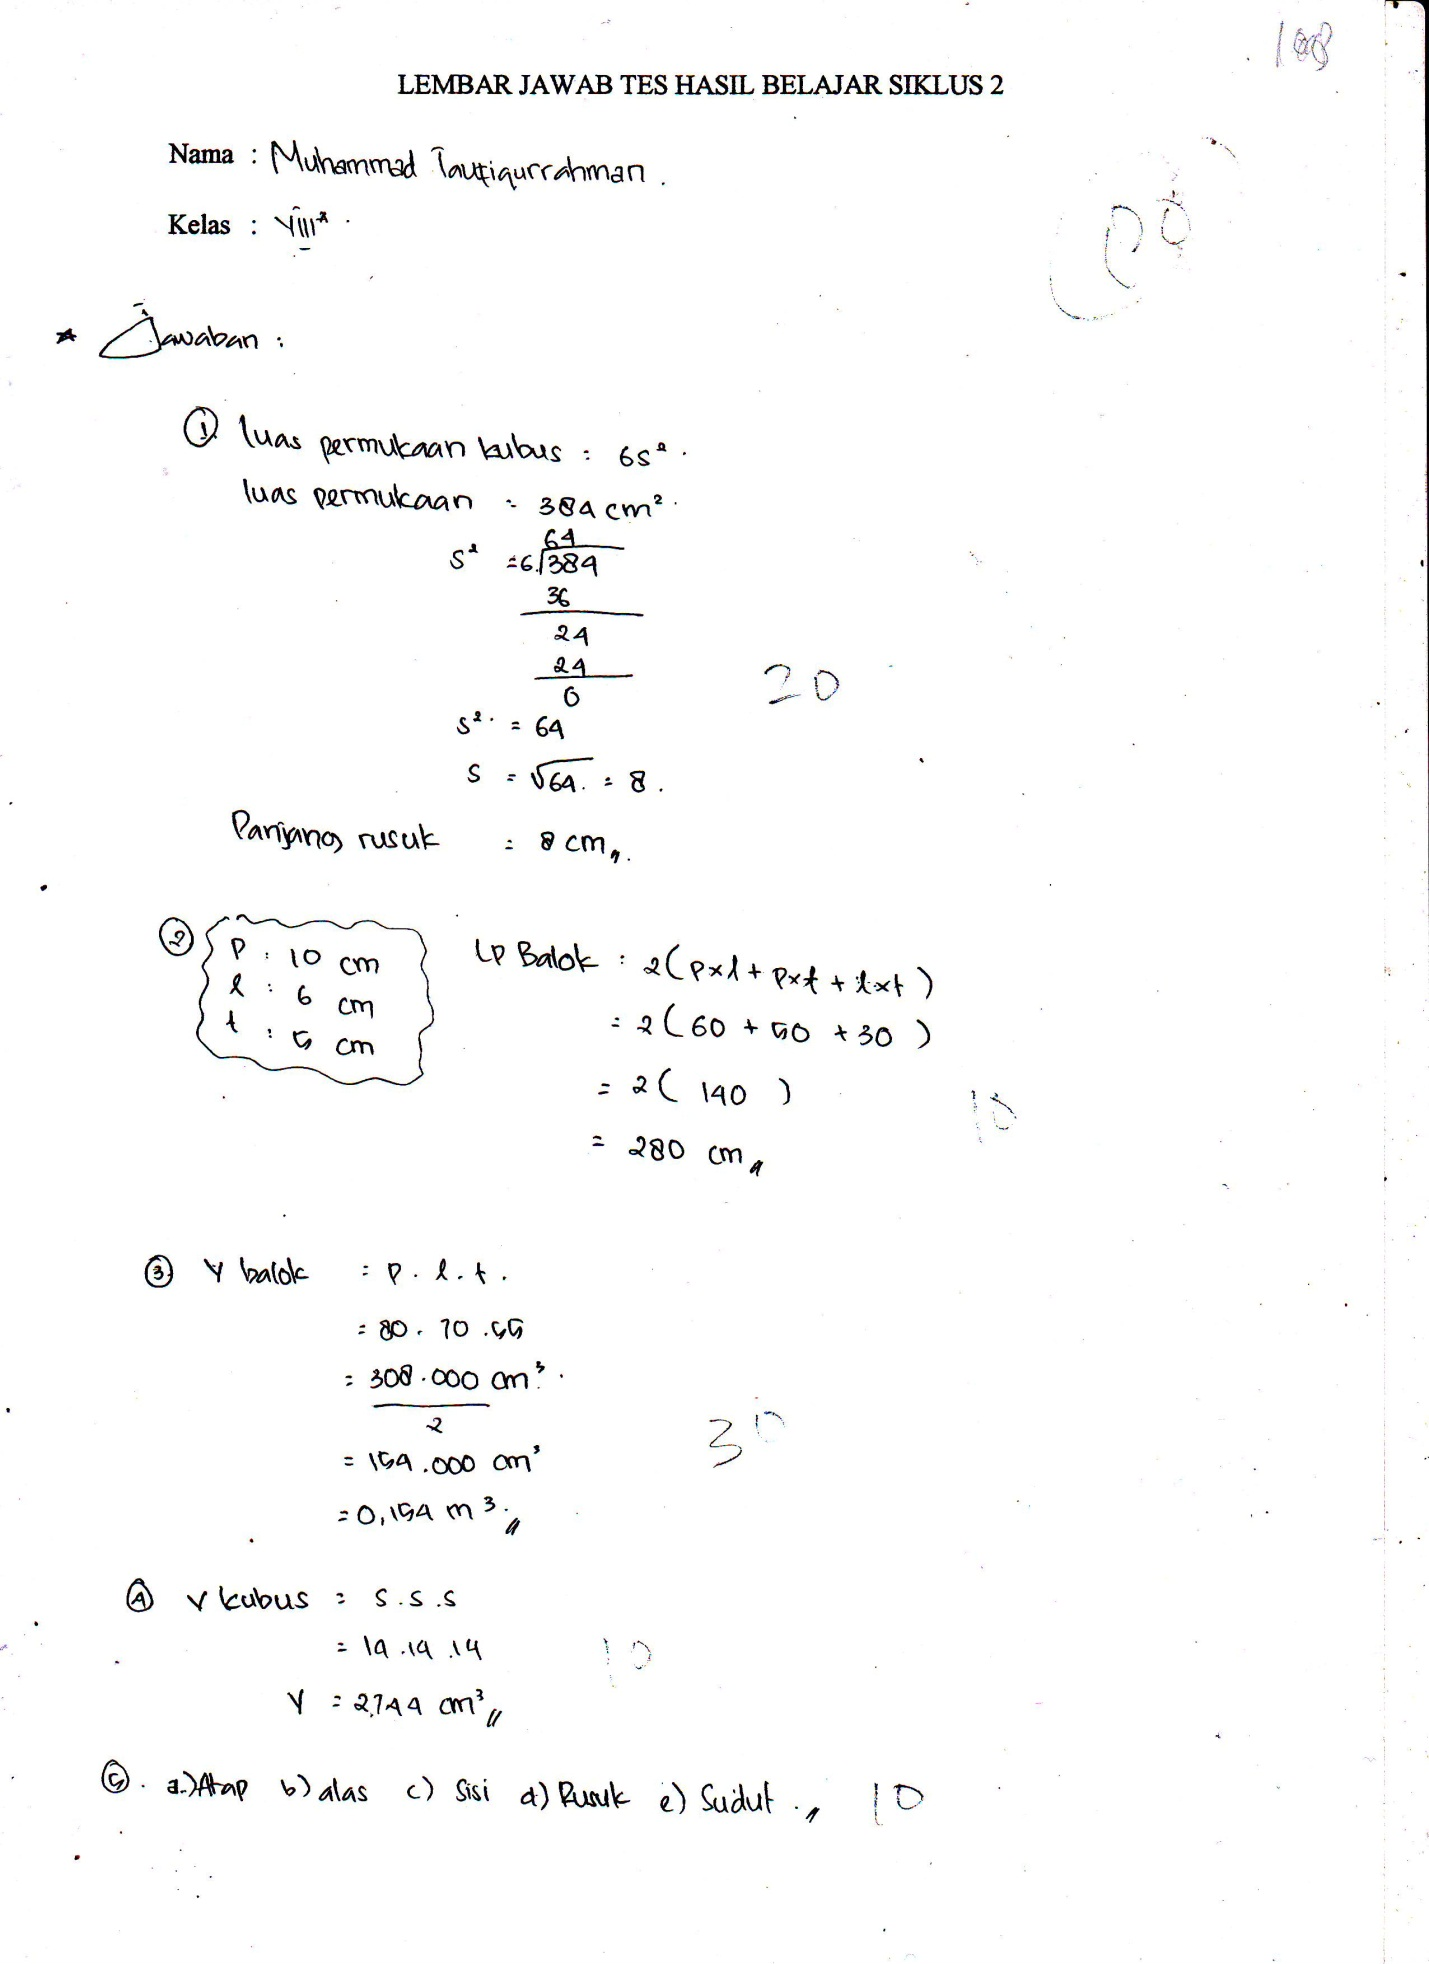 LEMBAR JAWAB TES HASIL BELAJAR SIKLUS 2
Nama : Muhammad Taufiqurrahman .
Kelas : VIII²
* Jawaban :
① luas permukaan kubus : 6s² .
luas permukaan = 384 cm² .
64
s² = 6 √384
36
24
24
0
20
s² = 64
s = √64 = 8 .
Panjang rusuk = 8 cm
② P : 10 cm
l : 6 cm
t : 5 cm
LP Balok : 2(p×l + p×t + l×t)
= 2(60 + 50 + 30)
= 2(140)
10
= 280 cm
③ V balok : p . l . t .
= 80 . 70 . 55
= 308.000 cm³ .
2
30
= 154.000 cm³
= 0,154 m³
④ V kubus = s . s . s
= 14 . 14 . 14
10
V = 2744 cm³
⑤ . a.) Atap b) alas c) Sisi d) Rusuk e) Sudut . 10